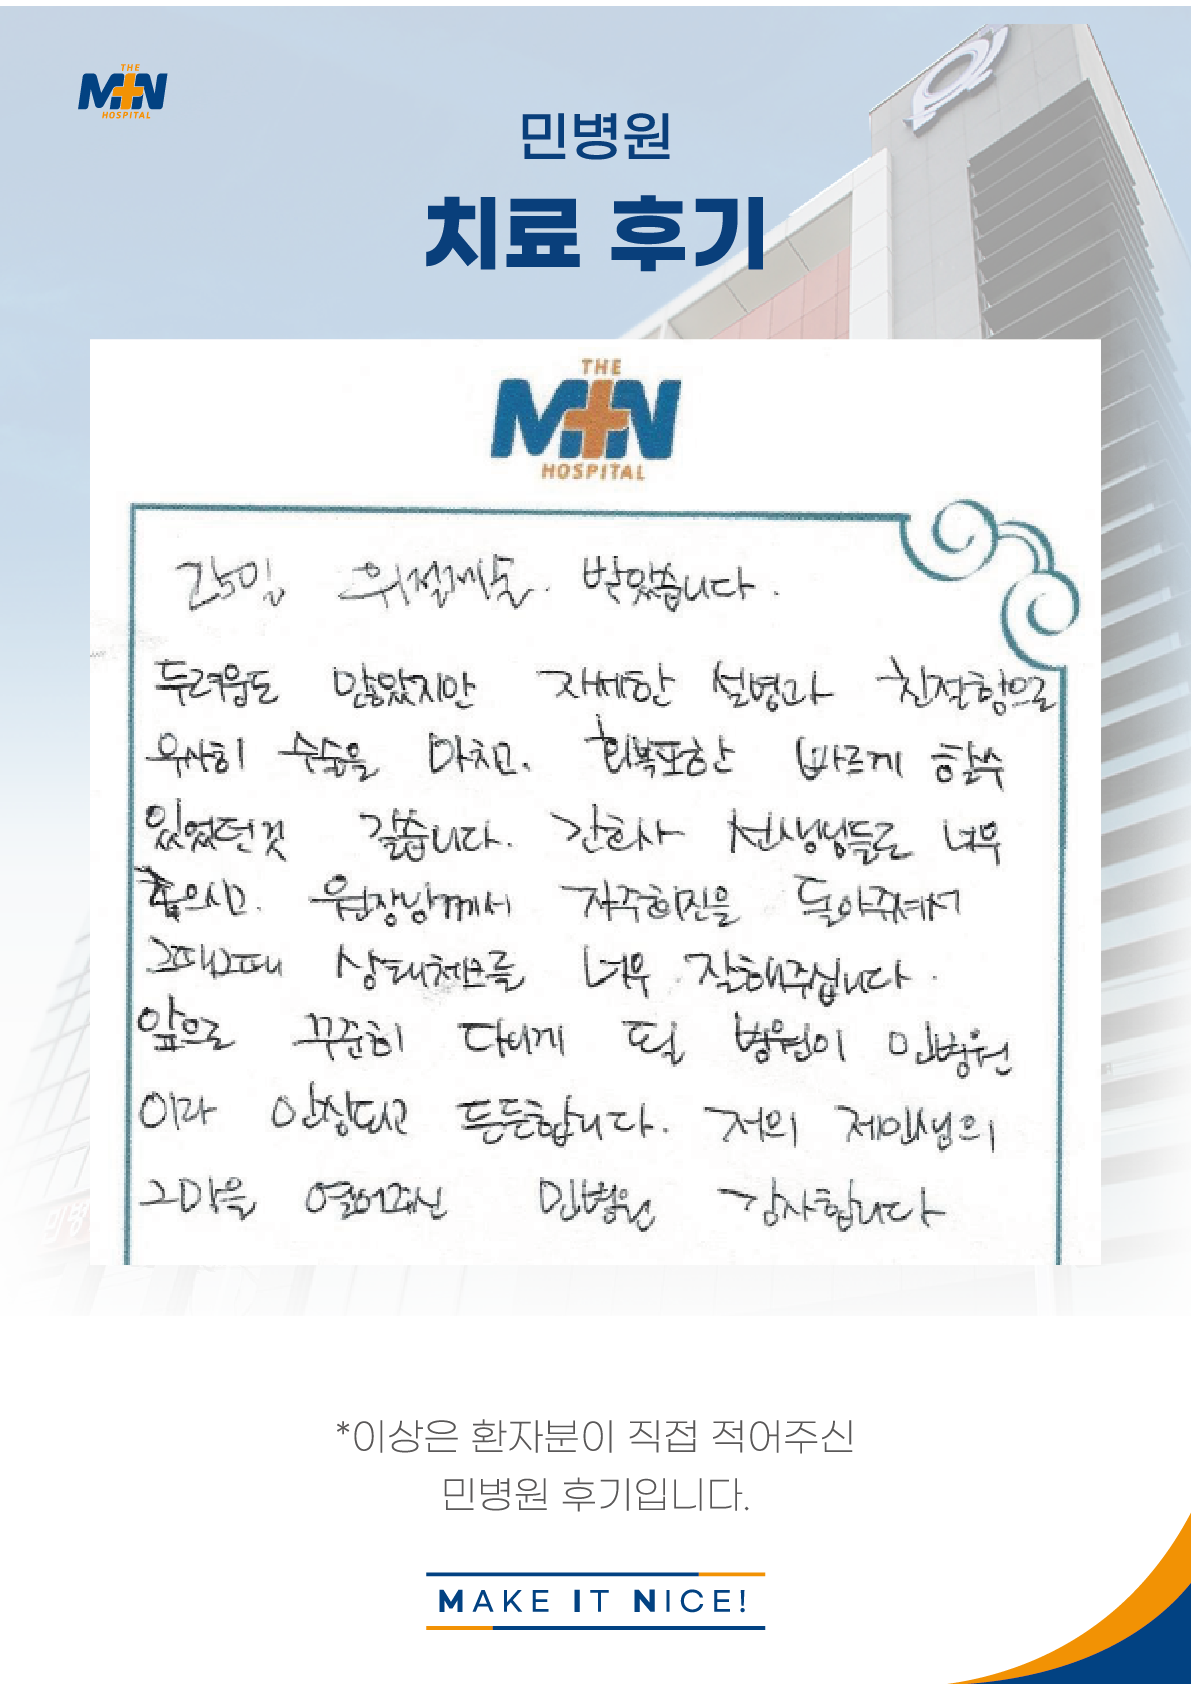 THE
MIN
HOSPITAL
민병원
치료 후기
THE
MIN
HOSPITAL
위절제술. 받았습니다.
두려움도 많았지만 자세한 설명과 친절함으로
무사히 수술을 마치고, 회복또한 빠르게 할수
있었던것 같습니다. 간호사 선생님들도 너무
좋으시고. 원장님께서 자주회진을 돌아주셔서
그때그때 상태체크를 너무 잘해주십니다.
앞으로 꾸준히 다니게 될 병원이 민병원
이라 안심되고 든든합니다. 저의 제2인생의
2막을 열어주신 민병원 감사합니다
민병
*이상은 환자분이 직접 적어주신
민병원 후기입니다.
MAKE IT NICE!